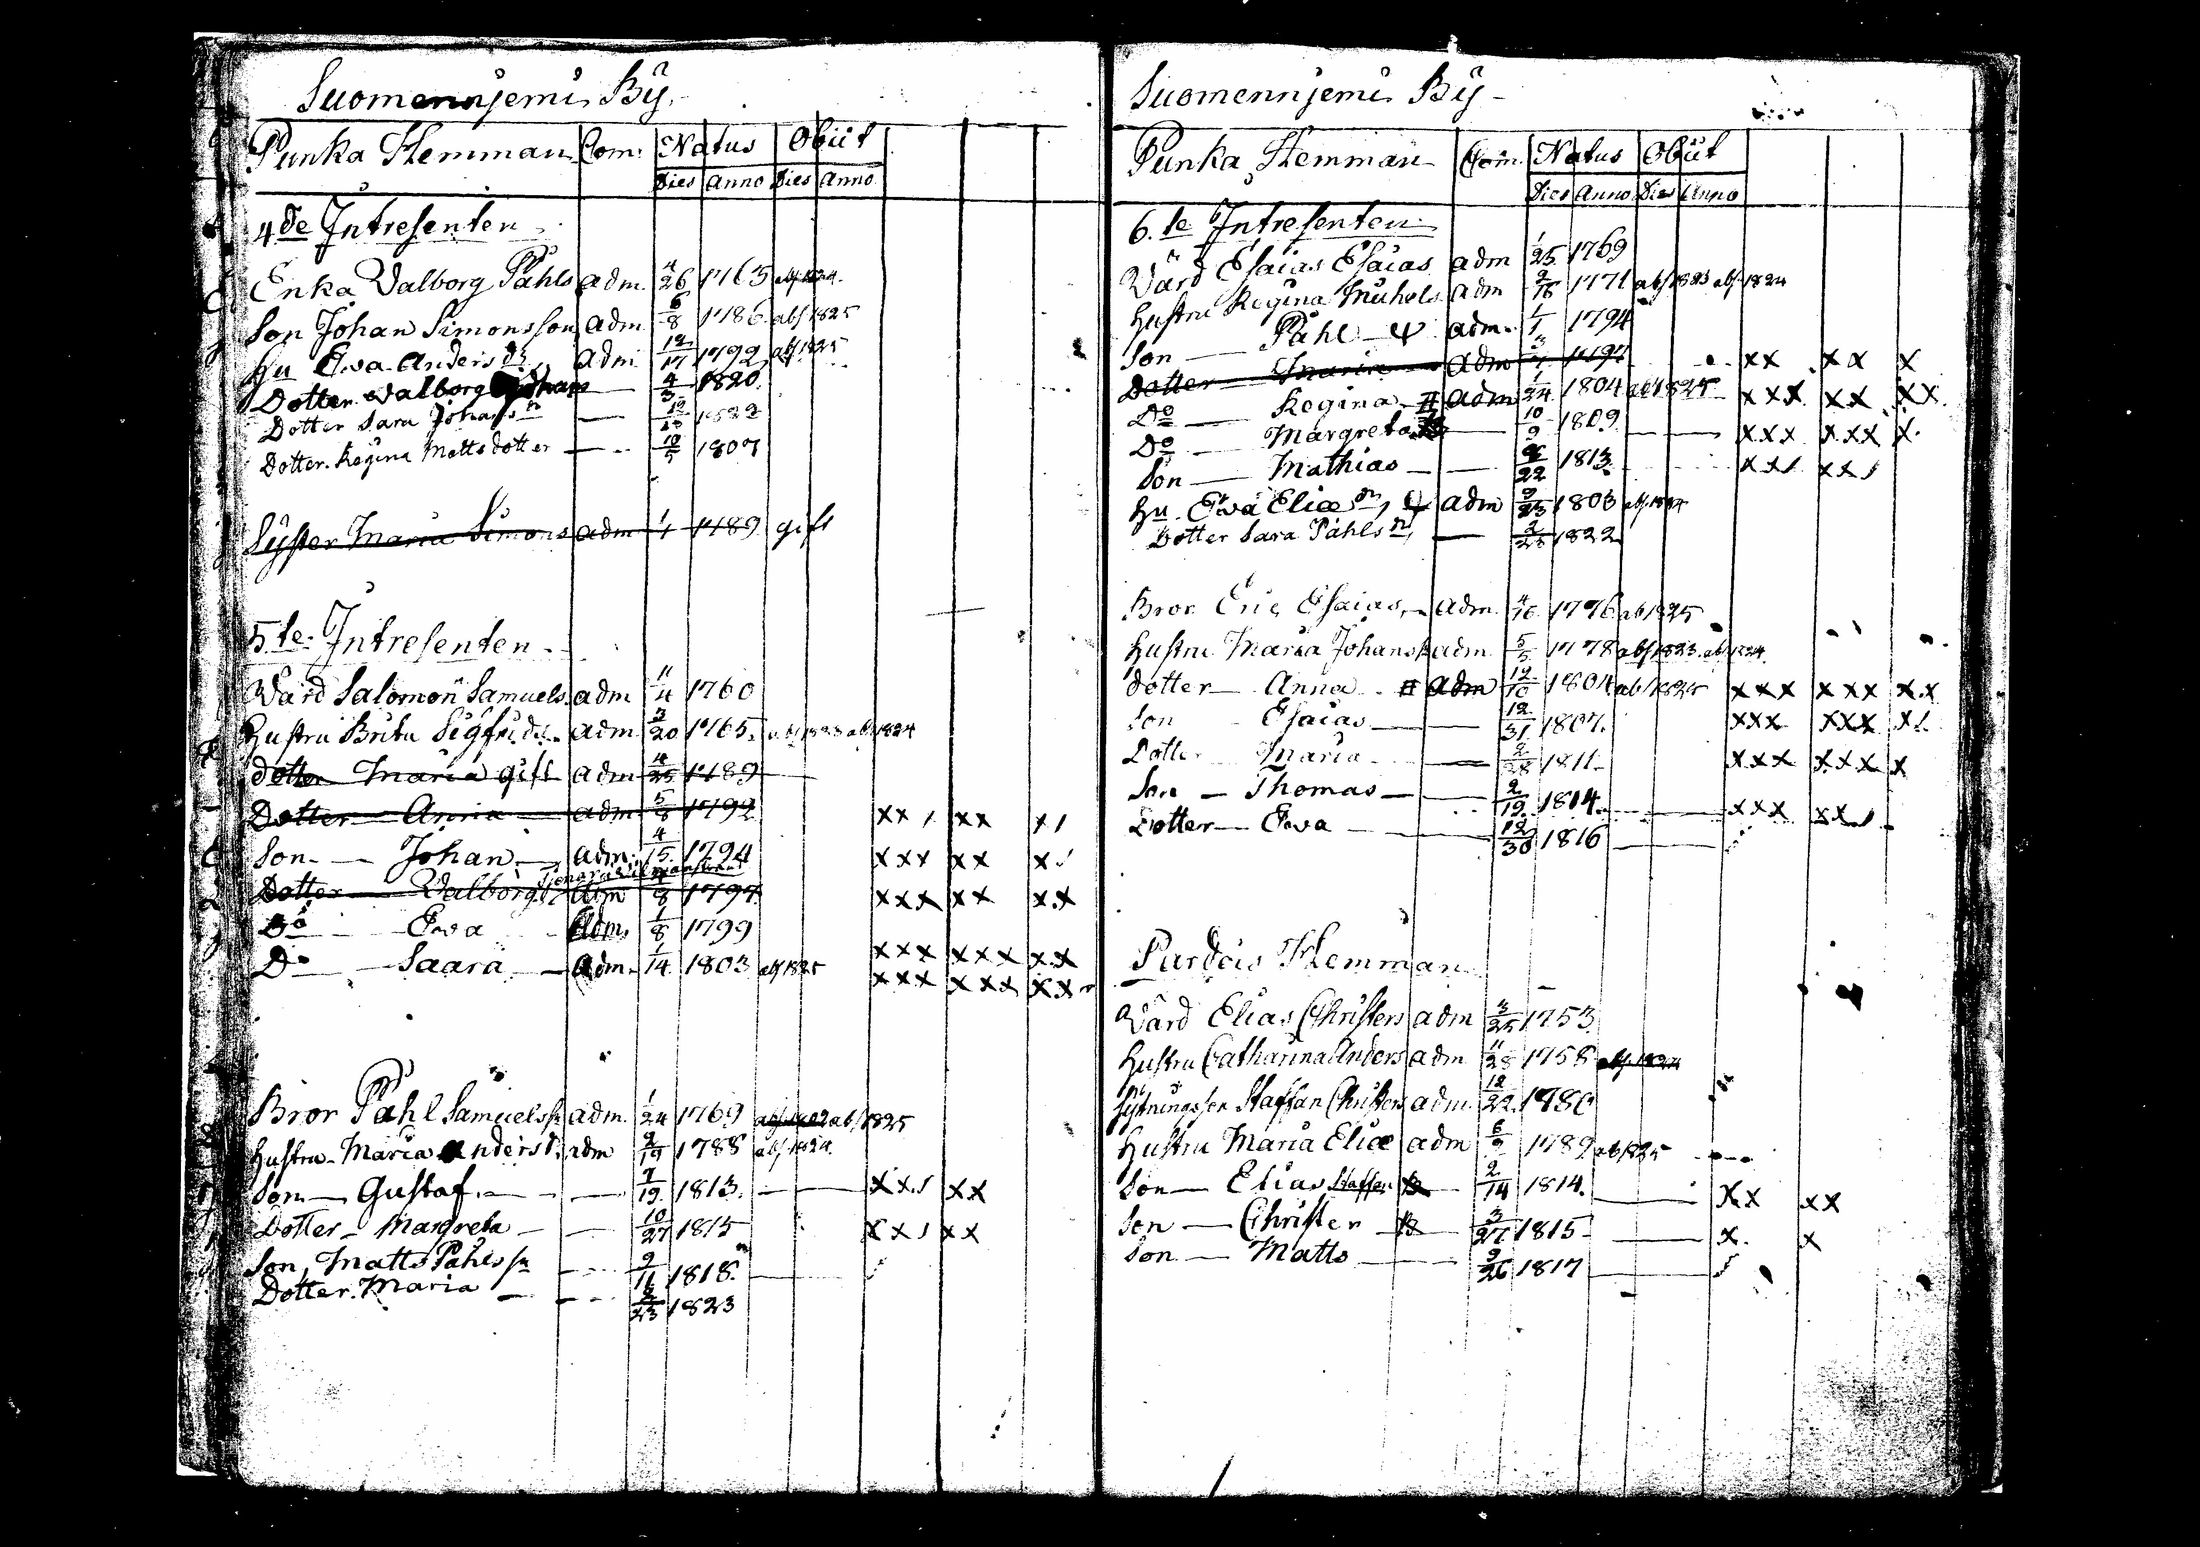 Suomennjemi By
Punka Hemman Com: Natus Obiit
Dies Anno Dies Anno
4de Intresenten
Enka Valborg Påhls adm 4/26 1763 abs 1824.
Son Johan Simonsson adm. 6/8 1786. abs 1825
Hu Ewa Anders dr adm 12/17 1792 abs 1825
Dotter Valborg — 4/3 1820
Dotter Sara Johans — 1822
Dotter. Regina Matts dotter — 10/5 1807
Syster Maria Simons adm 1/1 1789 gift
5.te Intresenten
Wärd Salomon Samuels. adm 11/4 1760
Hustru Brita Sigfrids. adm 3/20 1765. abs 1823 abs 1824
dotter Maria gift adm 4/25 1789
Dotter — Anna — adm 5/8 1792 xx, xx x,
Son — Johan — adm. 4/15. 1794 xxx xx x,
Dotter — Valborg adm 8 1797 xxx xx x.x
Do — Ewa — Adm. 1/8 1799
Do — Saara — Adm. 1/14. 1803 abs 1825 xxx xxx x.x
xxx xxx xx
Bror Påhl Samuelss adm. 1/24 1769 abs 1825
Hustru Maria Andersd. adm 2/19 1788 abs 1824
Son — Gustaf. — 7/19. 1813. — xx, xx
Dotter — Margreta — 10/27 1815 xx, xx
Son, Matts Påhls sn — 9/11 1818. —
Dotter. Maria — 2/23 1823
Suomennjemi By
Punka Hemman Com. Natus Obiit
Dies Anno Dies Anno
6.te Intresenten
Wärd Esaias Esaias adm 1/25 1769
Hustru Regina Michels adm 2/18 1771 abs 1823 abs 1824
Son — Påhl — adm. 1/1 1794
Dotter Maria adm 3 1797 — xx xx x
Do — Regina — # adm 1/24 1804 abs 1825 xxx xx xx
Do — Margreta — 10/9 1809 — xxx xxx x.
Son — Mathias — 22 1813. xx, xx,
Hu. Ewa Eliæ dr, adm 9/23 1803 abs 1824
Dotter Sara Påhls dr, — 2/28 1822
Bror Eric Esaias, adm. 4/16. 1776 abs 1825
Hustru Maria Johans adm 5/5 1778 abs 1823. abs 1824.
dotter — Anna — # adm 12/10 1804 abs 1825 xxx xxx x.x
Son — Esaias — 12/31 1807. xxx xxx x,
Dotter — Maria — 2/28 1811 xxx xxx x
Son — Thomas — 2/19. 1814. — xxx xx,
Dotter — Ewa — 12/30 1816 —
Pardois Hemman
Wärd Elias Christers adm 3/25 1753
Hustru Catharina Anders adm 11/28 1758 abs. 1824
Sytningsson Staffan Christers adm. 12/22. 1780
Hustru Maria Eliæ adm 6/9 1789 abs 1825
Son — Elias Staffan — 2/14 1814. — xx xx
Son — Christer — 3/27 1815 — x. x
Son — Matts — 9/26 1817 —